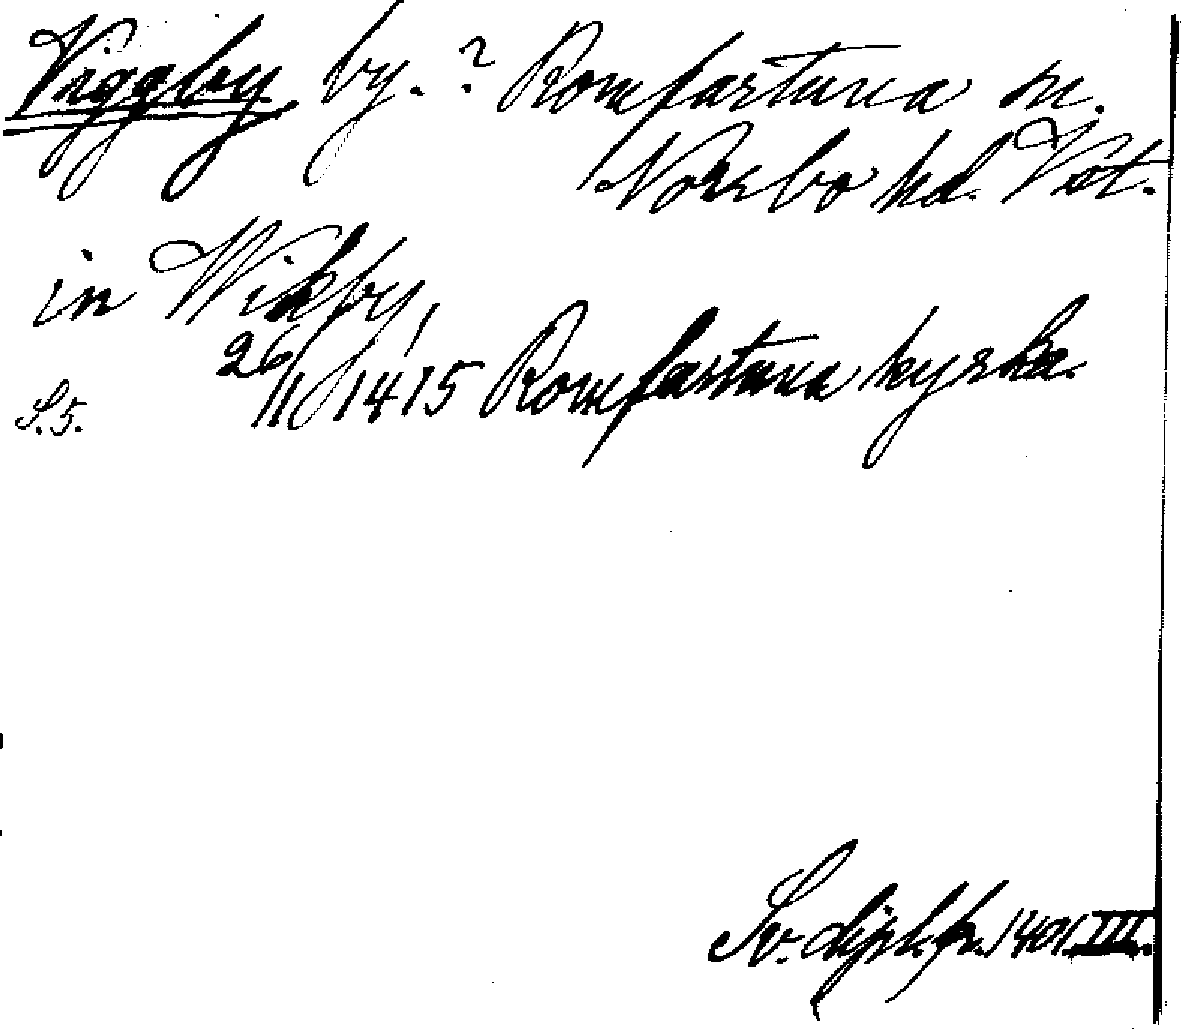 Viggby by.? Romfartuna sn.
Norrbo hd. Vst.
in Wikby,
26/11 1415 Romfartuna kyrka.
S. 5.
Sv. dipl. fr. 1401 III.